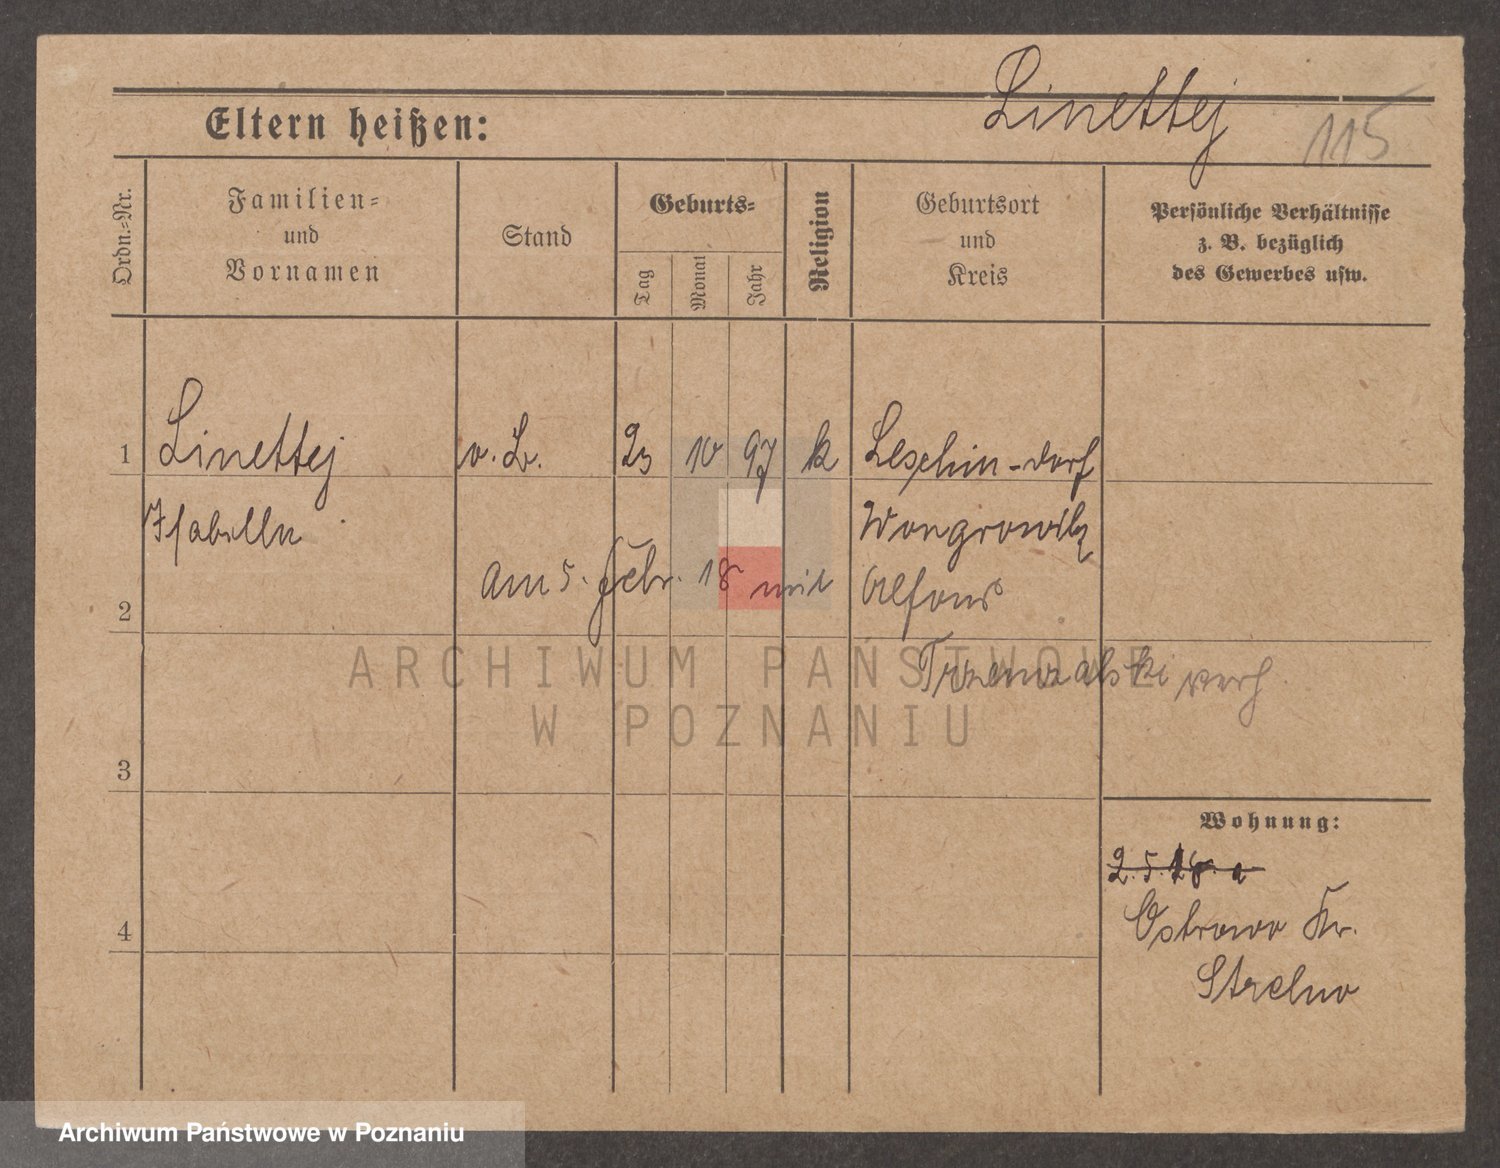 Linettej
Eltern heißen:
115
Ordn.=Nr.
Familien=
und
Vornamen
Stand
Geburts=
Tag
Monat
Jahr
Religion
Geburtsort
und
Kreis
Persönliche Verhältnisse
z. B. bezüglich
des Gewerbes usw.
1
Linettej
o. B.
23 10 97 k
Leschin-dorf
Isabella
Wongrowitz
am 5. Febr. 18 mit Alfons
2
verh
ARCHIWUM PAŃSTWOWE
W POZNANIU
3
Wohnung:
2. 5. 18. a
4
Ostrowo Kr.
Strelno
Archiwum Państwowe w Poznaniu